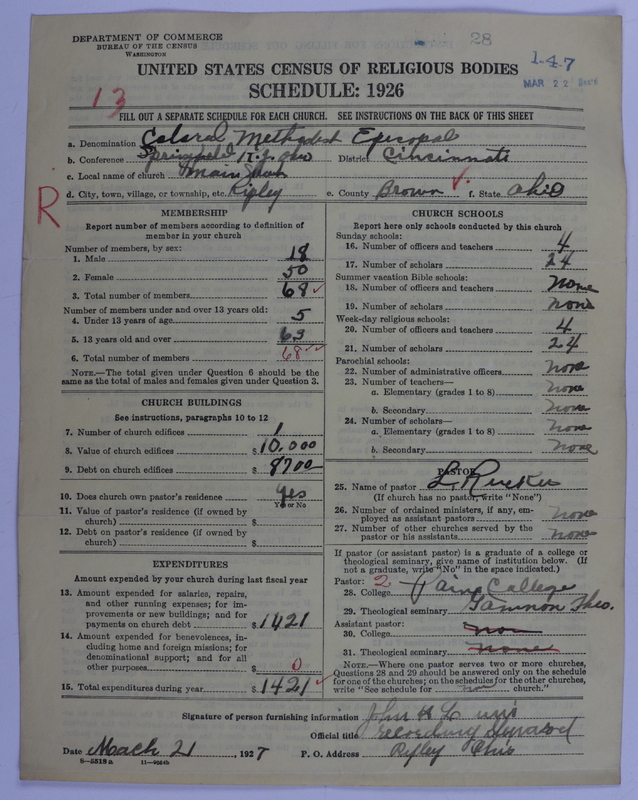 DEPARTMENT OF COMMERCE
BUREAU OF THE CENSUS
WASHINGTON
28
1-4-7
MAR 22
UNITED STATES CENSUS OF RELIGIOUS BODIES
SCHEDULE: 1926
13
FILL OUT A SEPARATE SCHEDULE FOR EACH CHURCH. SEE INSTRUCTIONS ON THE BACK OF THIS SHEET
a. Denomination Colord Methodest Episcopal
b. Conference Springfield Ohio District Cincinnati
c. Local name of church Main
d. City, town, village, or township, etc. Ripley e. County Brown f. State Ohio
R
MEMBERSHIP
Report number of members according to definition of member in your church
Number of members, by sex:
1. Male 18
2. Female 50
3. Total number of members 68
Number of members under and over 13 years old:
4. Under 13 years of age 5
5. 13 years old and over 63
6. Total number of members 68
NOTE.—The total given under Question 6 should be the same as the total of males and females given under Question 3.
CHURCH BUILDINGS
See instructions, paragraphs 10 to 12
7. Number of church edifices 1
8. Value of church edifices $10,000
9. Debt on church edifices $8700
10. Does church own pastor's residence yes
Yes or No
11. Value of pastor's residence (if owned by church) $
12. Debt on pastor's residence (if owned by church) $
EXPENDITURES
Amount expended by your church during last fiscal year
13. Amount expended for salaries, repairs, and other running expenses; for improvements or new buildings; and for payments on church debt $1421
14. Amount expended for benevolences, including home and foreign missions; for denominational support; and for all other purposes $0
15. Total expenditures during year $1421
CHURCH SCHOOLS
Report here only schools conducted by this church
Sunday schools:
16. Number of officers and teachers 4
17. Number of scholars 24
Summer vacation Bible schools:
18. Number of officers and teachers none
19. Number of scholars none
Week-day religious schools:
20. Number of officers and teachers 4
21. Number of scholars 24
Parochial schools:
22. Number of administrative officers none
23. Number of teachers—
a. Elementary (grades 1 to 8) none
b. Secondary none
24. Number of scholars—
a. Elementary (grades 1 to 8) none
b. Secondary none
PASTOR
25. Name of pastor L. Rucker
(If church has no pastor, write "None")
26. Number of ordained ministers, if any, employed as assistant pastors none
27. Number of other churches served by the pastor or his assistants none
If pastor (or assistant pastor) is a graduate of a college or theological seminary, give name of institution below. (If not a graduate, write "No" in the space indicated.)
Pastor: 2
28. College Paine College
29. Theological seminary Gammon Theo.
Assistant pastor:
30. College non
31. Theological seminary none
NOTE.—Where one pastor serves two or more churches, Questions 28 and 29 should be answered only on the schedule for one of the churches; on the schedules for the other churches, write "See schedule for non church."
Signature of person furnishing information John H
Official title recording
Date Mach 21, 1927 P. O. Address Ripley Ohio
8—5518a 11—9054b